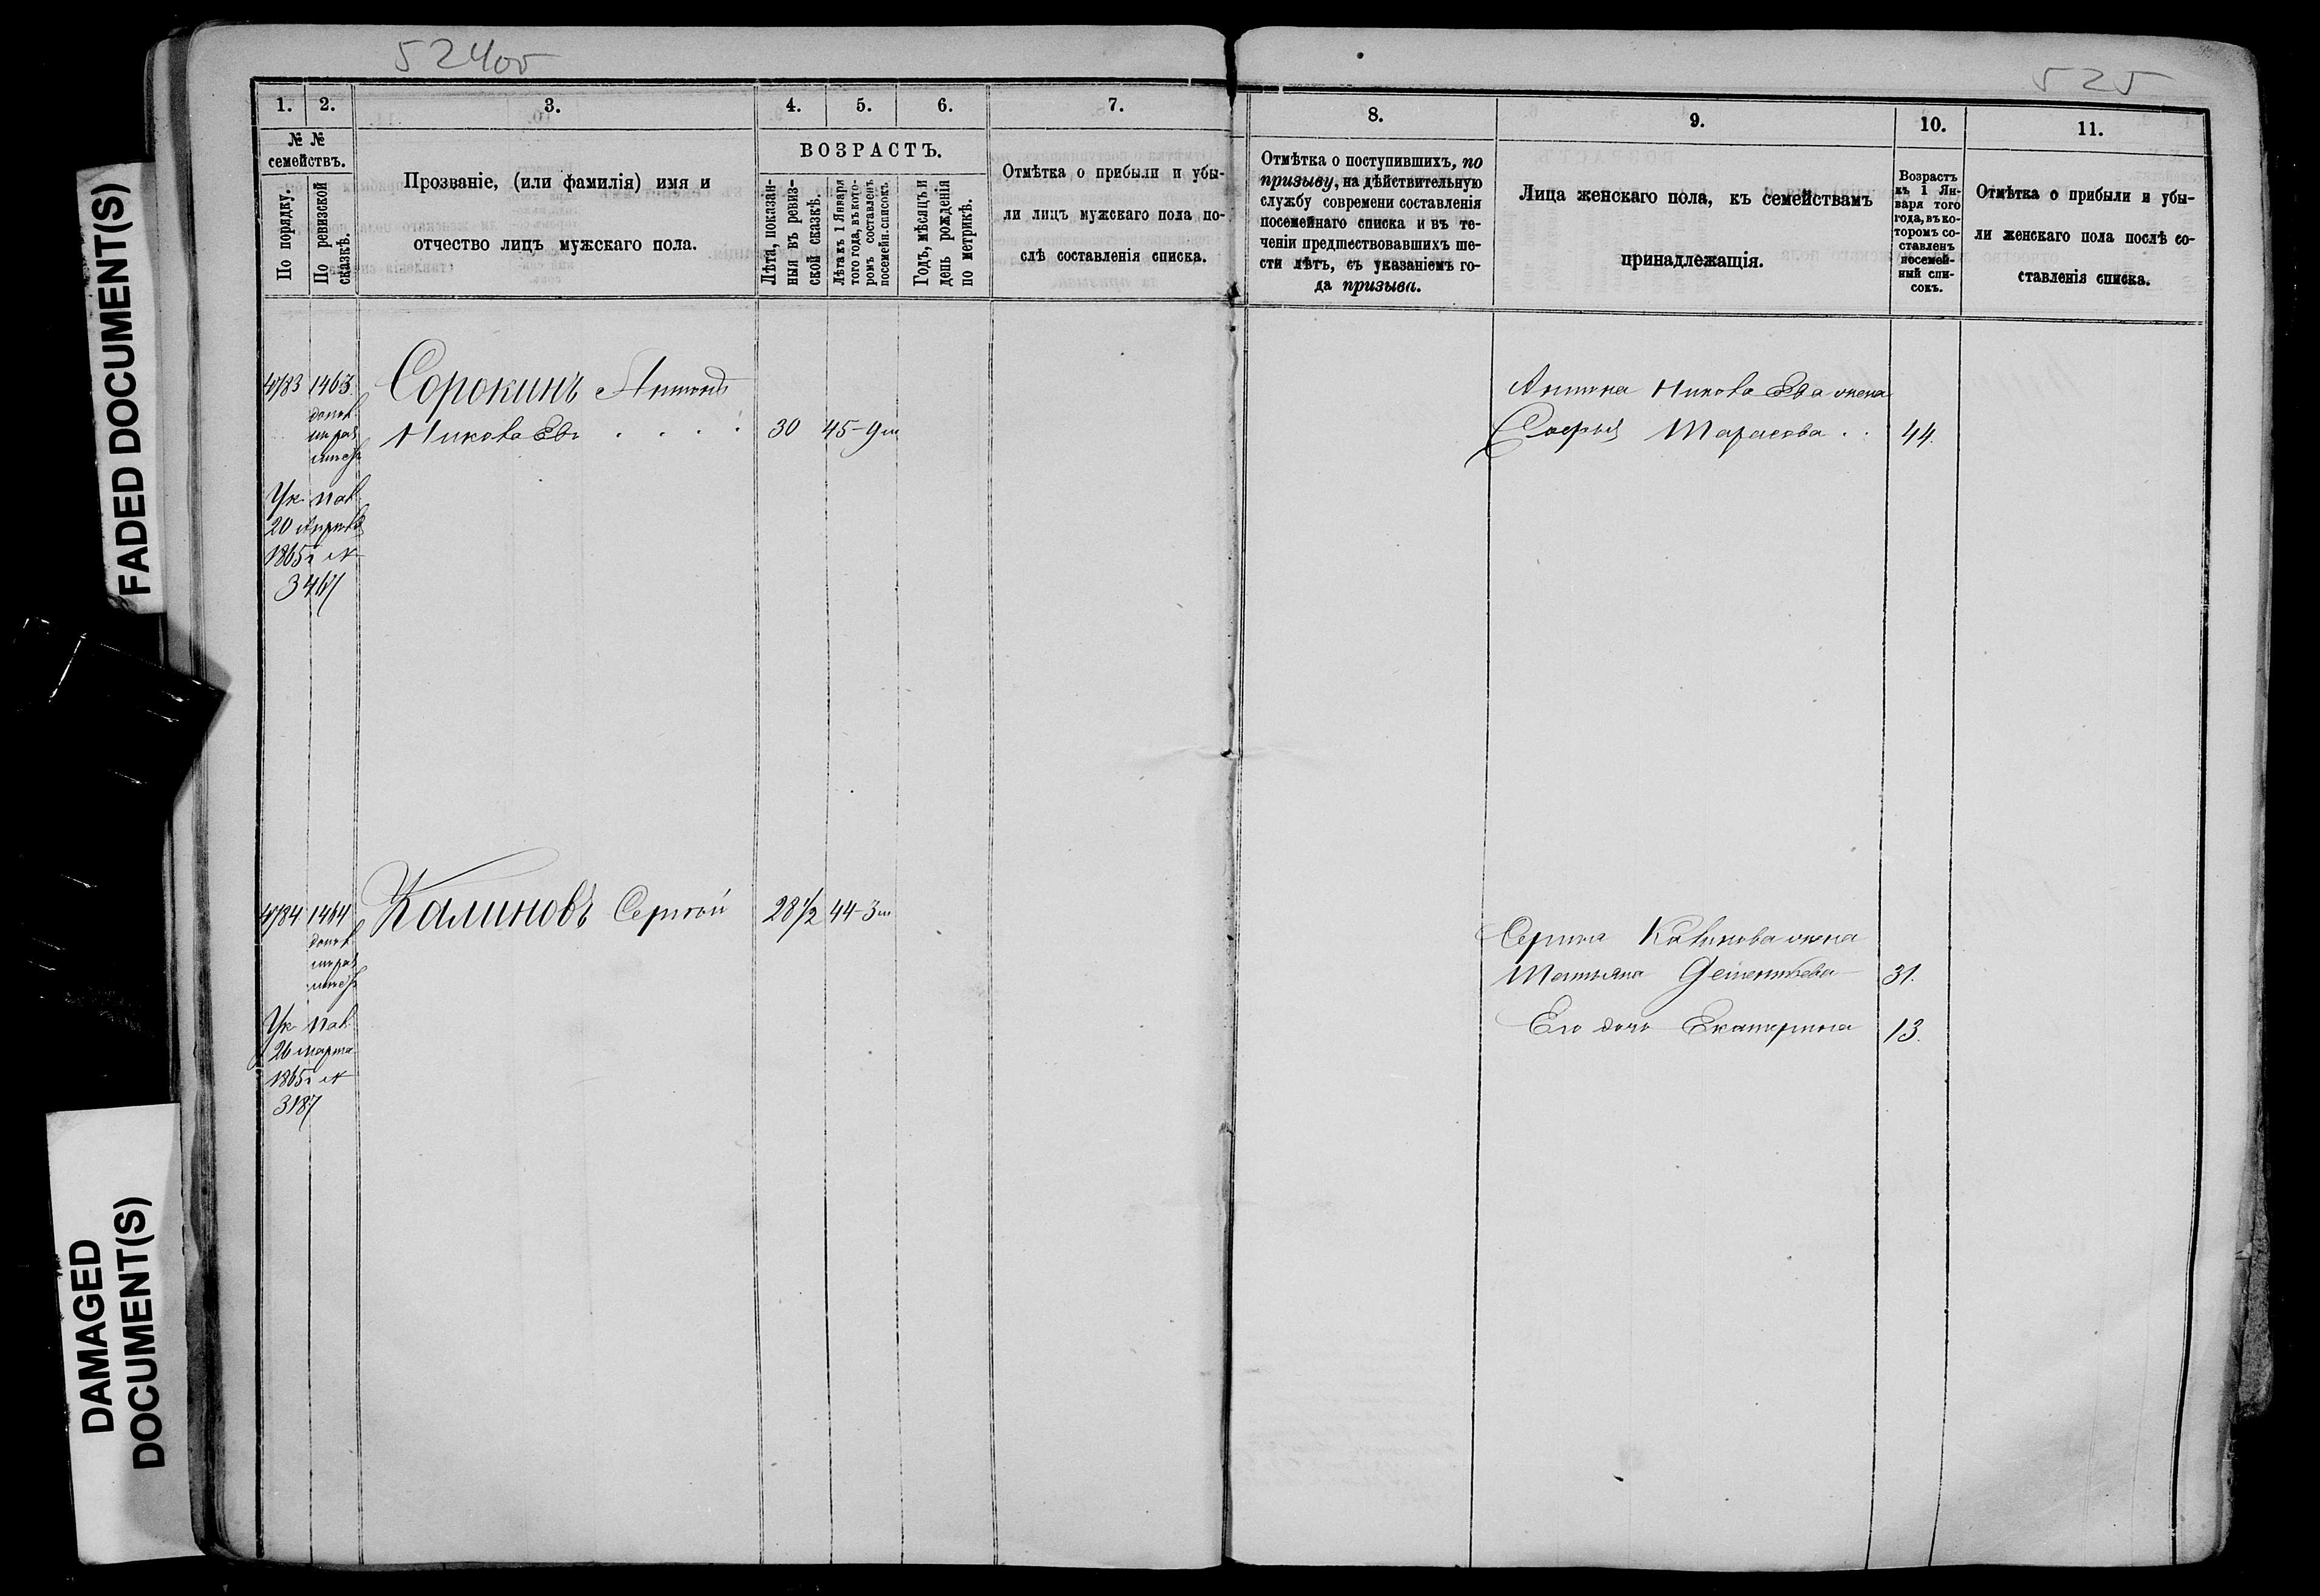 524об
525
FADED DOCUMENT(S)
DAMAGED
DOCUMENT(S)
1. 2. 3. 4. 5. 6. 7.
№ №
семействъ.
По порядку.
По ревизской
сказкѣ.
Прозваніе, (или фамилія) имя и
отчество лицъ мужскаго пола.
ВОЗРАСТЪ.
Лѣта, показан-
ныя въ ревиз-
ской сказкѣ.
Лѣта къ 1 Января
того года, въ кото-
ромъ составленъ
посемейн. списокъ.
Годъ, мѣсяцъ и
день рожденія
по метрикѣ.
Отмѣтка о прибыли и убы-
ли лицъ мужскаго пола по-
слѣ составленія списка.
8. 9. 10. 11.
Отмѣтка о поступившихъ, по
призыву, на дѣйствительную
службу современи составленія
посемейнаго списка и въ те-
ченіи предшествовавшихъ ше-
сти лѣтъ, съ указаніемъ го-
да призыва.
Лица женскаго пола, къ семействамъ
принадлежащія.
Возрастъ
къ 1 Ян-
варя того
года, въ ко-
торомъ со-
ставленъ
посемей-
ный спи-
сокъ.
Отмѣтка о прибыли и убы-
ли женскаго пола послѣ со-
ставленія списка.
4783 1463 Сорокинъ Антонъ
Николаевъ . . . . 30 45-9м
Ук. пал.
20 Апрѣля
1865г №
3467
Антона Николаева жена
Софья Тарасова . . 44.
4784 1464 Калиновъ Сергѣй 28 1/2 44-3м
Ук. пал.
26 марта
1865г №
3187
Сергѣя Калинова жена
Татьяна Дементьева 31.
Его дочь Екатерина 13.